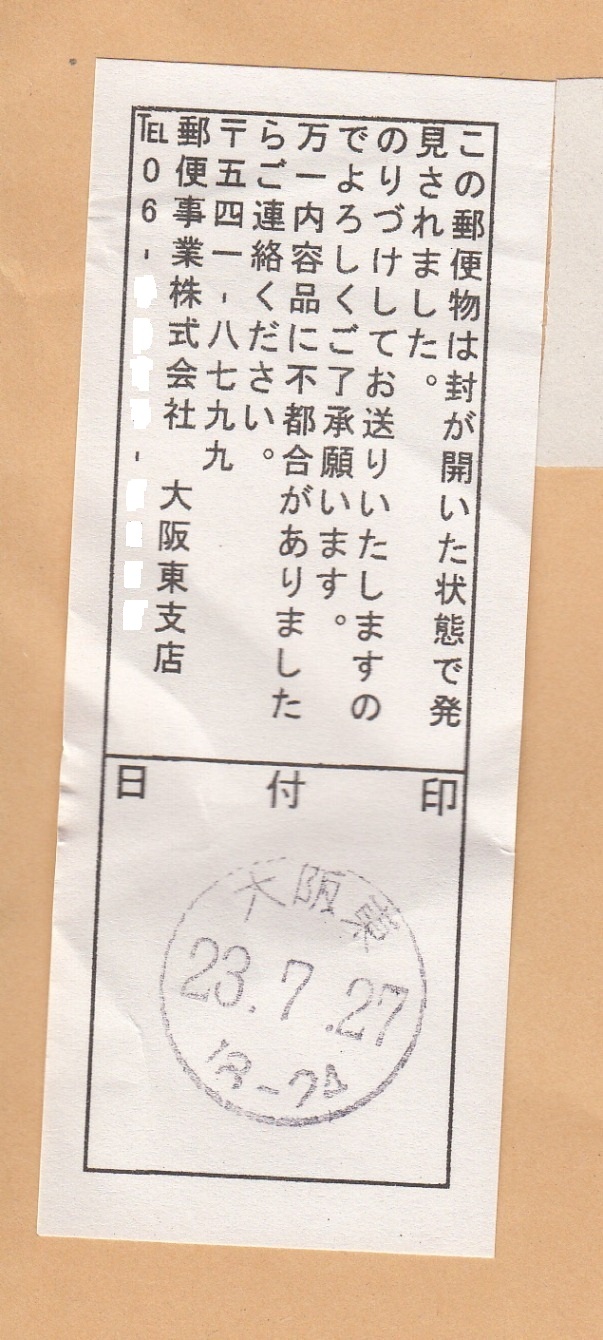 この郵便物は封が開いた状態で発
見されました。
のりづけしてお送りいたしますの
でよろしくご了承願います。
万一内容品に不都合がありました
らご連絡ください。
〒五四一-八七九九
郵便事業株式会社 大阪東支店
TEL06-
日付印
大阪東
23.7.27
18-24